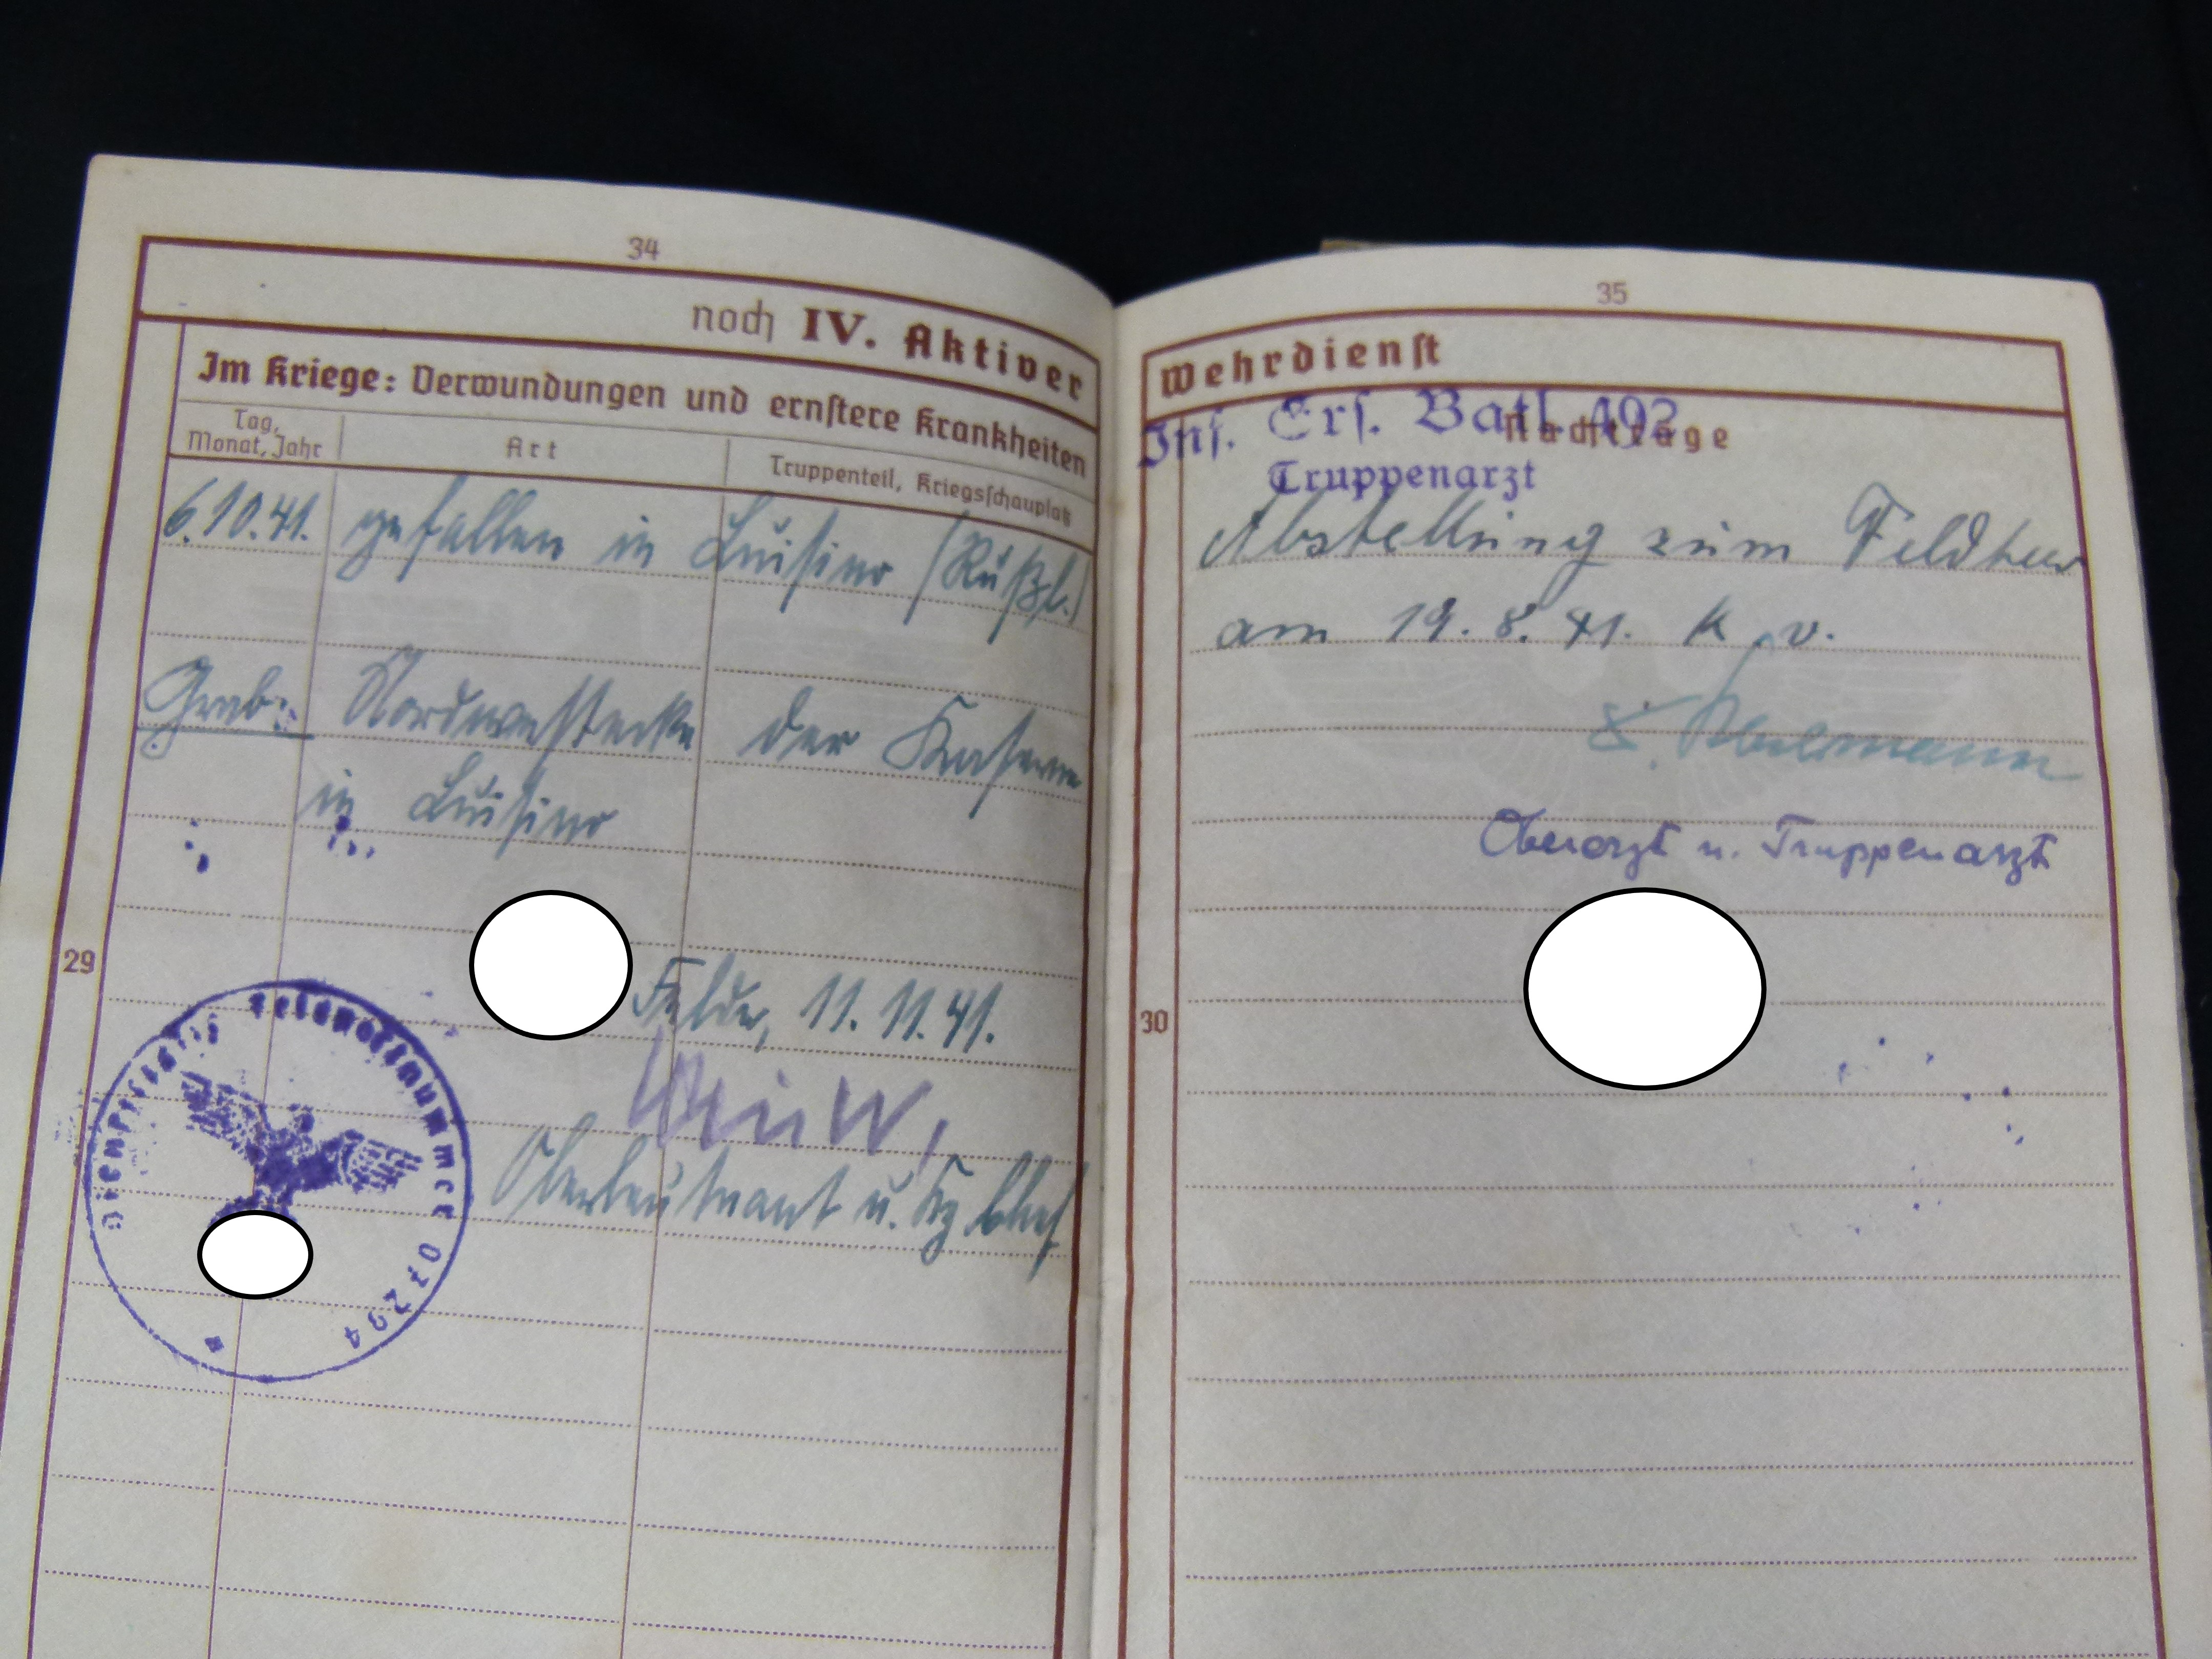 34
noch IV. Aktiver
Im Kriege: Verwundungen und ernstere Krankheiten
Tag, Monat, Jahr
Art
Truppenteil, Kriegsschauplatz
6.10.41. gefallen in Luisino (Rußl.)
Grab: Nordwestecke der Kaserne
in Luisino
29
Felde, 11.11.41.
Oberleutnant u. Kp Chef
Dienststelle Feldpostnummer 07294
35
Wehrdienst
Inf. Ers. Batl. 492
Nachträge
Truppenarzt
Abstellung zum Feldheer
am 19.8.41. k.v.
Oberarzt u. Truppenarzt
30